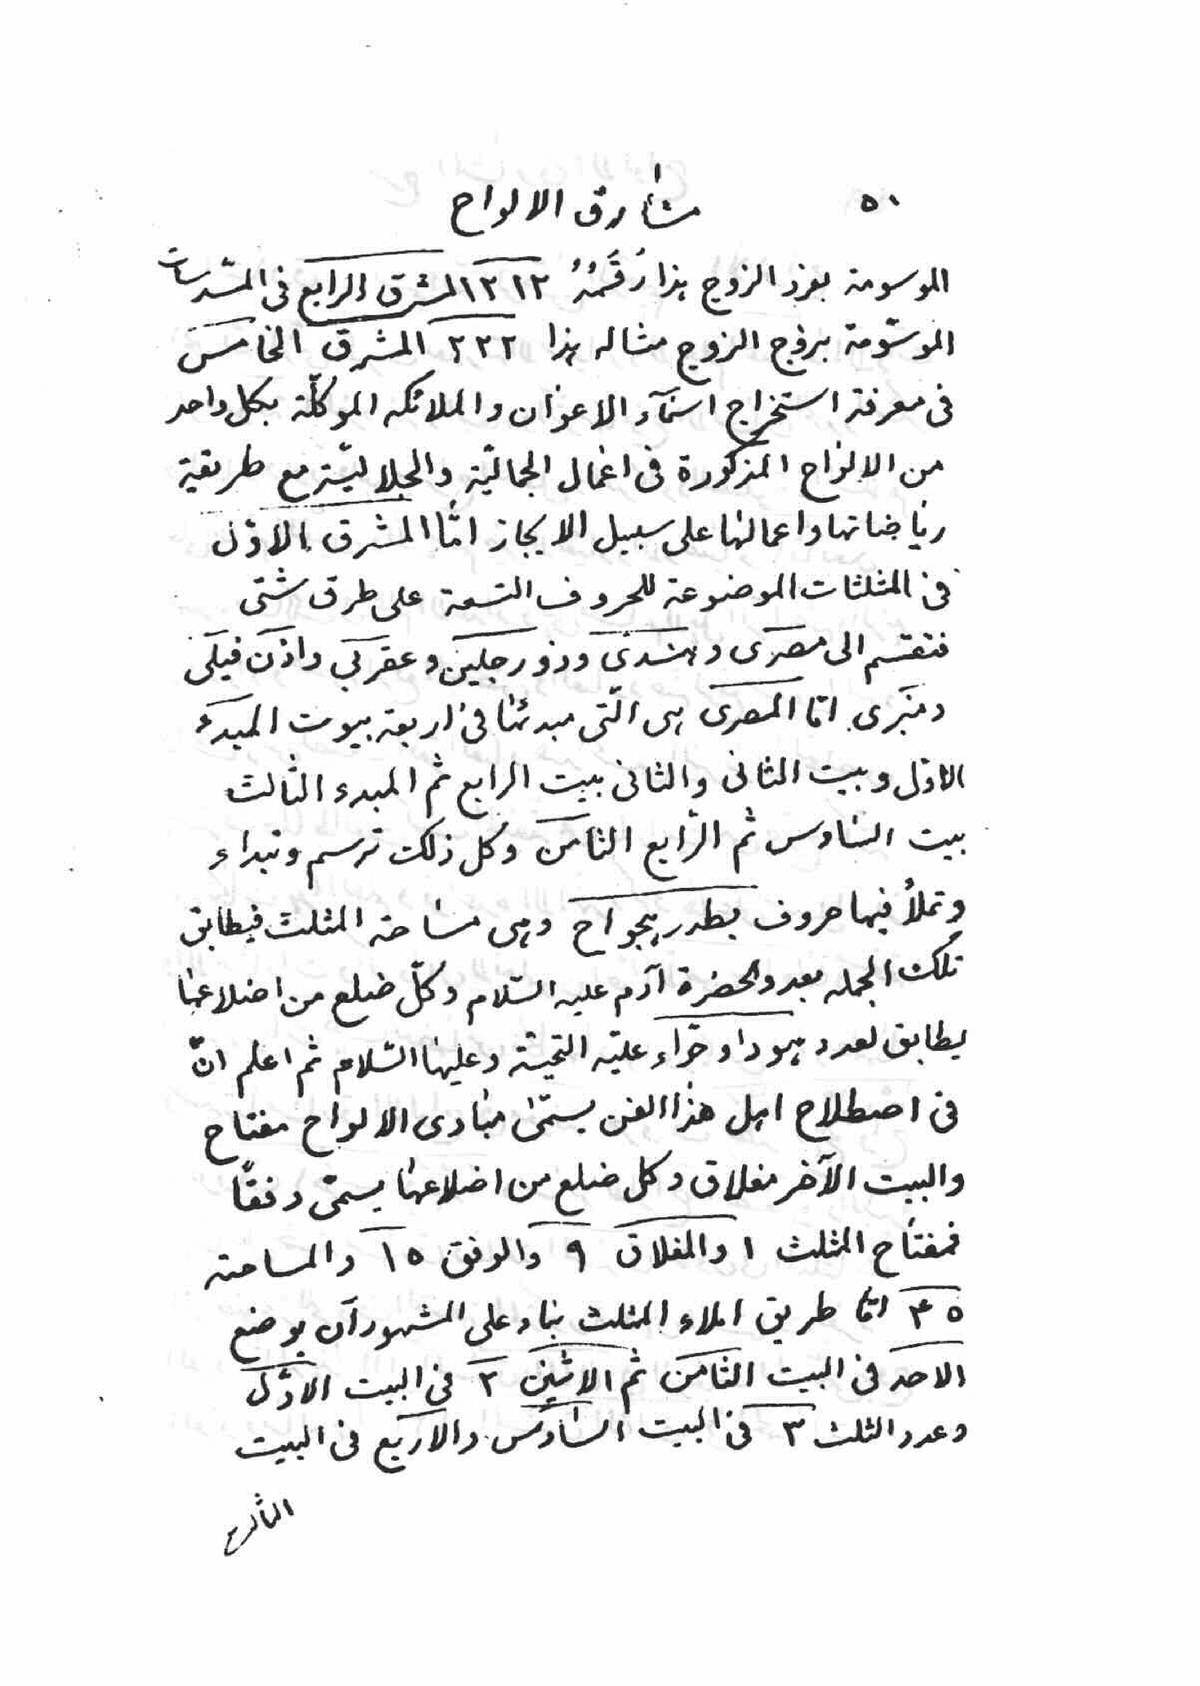 ٥٠ مشارق الالواح
الموسومة بفرد الزوج هذا رَقَمُهُ ١٢١٢ المشرق الرابع فى المسّدسات
الموسّومة بزوج الزوج مثاله هذا ٢٢٢ المشرق الخامس
فى معرفة استخراج اسمآء الاعوان والملائكه الموكلّة بكل واحد
من الالواح المذكورة فى اعمال الجماليّة والجلاليّة مع طريقية
رياضاتها واعمالها على سبيل الايجاز امّا المشرق الاوّل
فى المثلثات الموضوعة للحروف التسعة على طرق شتى
فتقسم الى مصرى وهندى وذو رجلين وعقربى واذن فيلى
ومنبرى امّا المصرى هى الّتى مبدئها فى اربعة بيوت المبدء
الاوّل وبيت الثانى والثانى بيت الرابع ثم المبدء الثالث
بيت السّادس ثم الرّابع الثامن وكل ذلك ترسم وتبداء
وتملأ فيها حروف بطدزهجواح وهى مساحة المثلث فيطابق
تلك الجمله بعدد الحضرة آدم عليه السّلام وكلّ ضلع من اضلاعها
يطابق لعدد هود او حوّاء عليّه التحيّة وعليها السّلام ثم اعلم انّ
فى اصطلاح اهل هذا الفن يسمّى مبادى الالواح مفتاح
والبيت الآخر مغلاق وكل ضلع من اضلاعها يسمّى وفقاً
فمفتاح المثلث ١ والمغلاق ٩ والوفق ١٥ والمساحة
٤٥ امّا طريق املاء المثلث بناء على المشهور آن يوضع
الاحد فى البيت الثامن ثم الاثنين ٢ فى البيت الاوّل
وعدد الثلث ٣ فى البيت السّادس والاربع فى البيت
الثالث